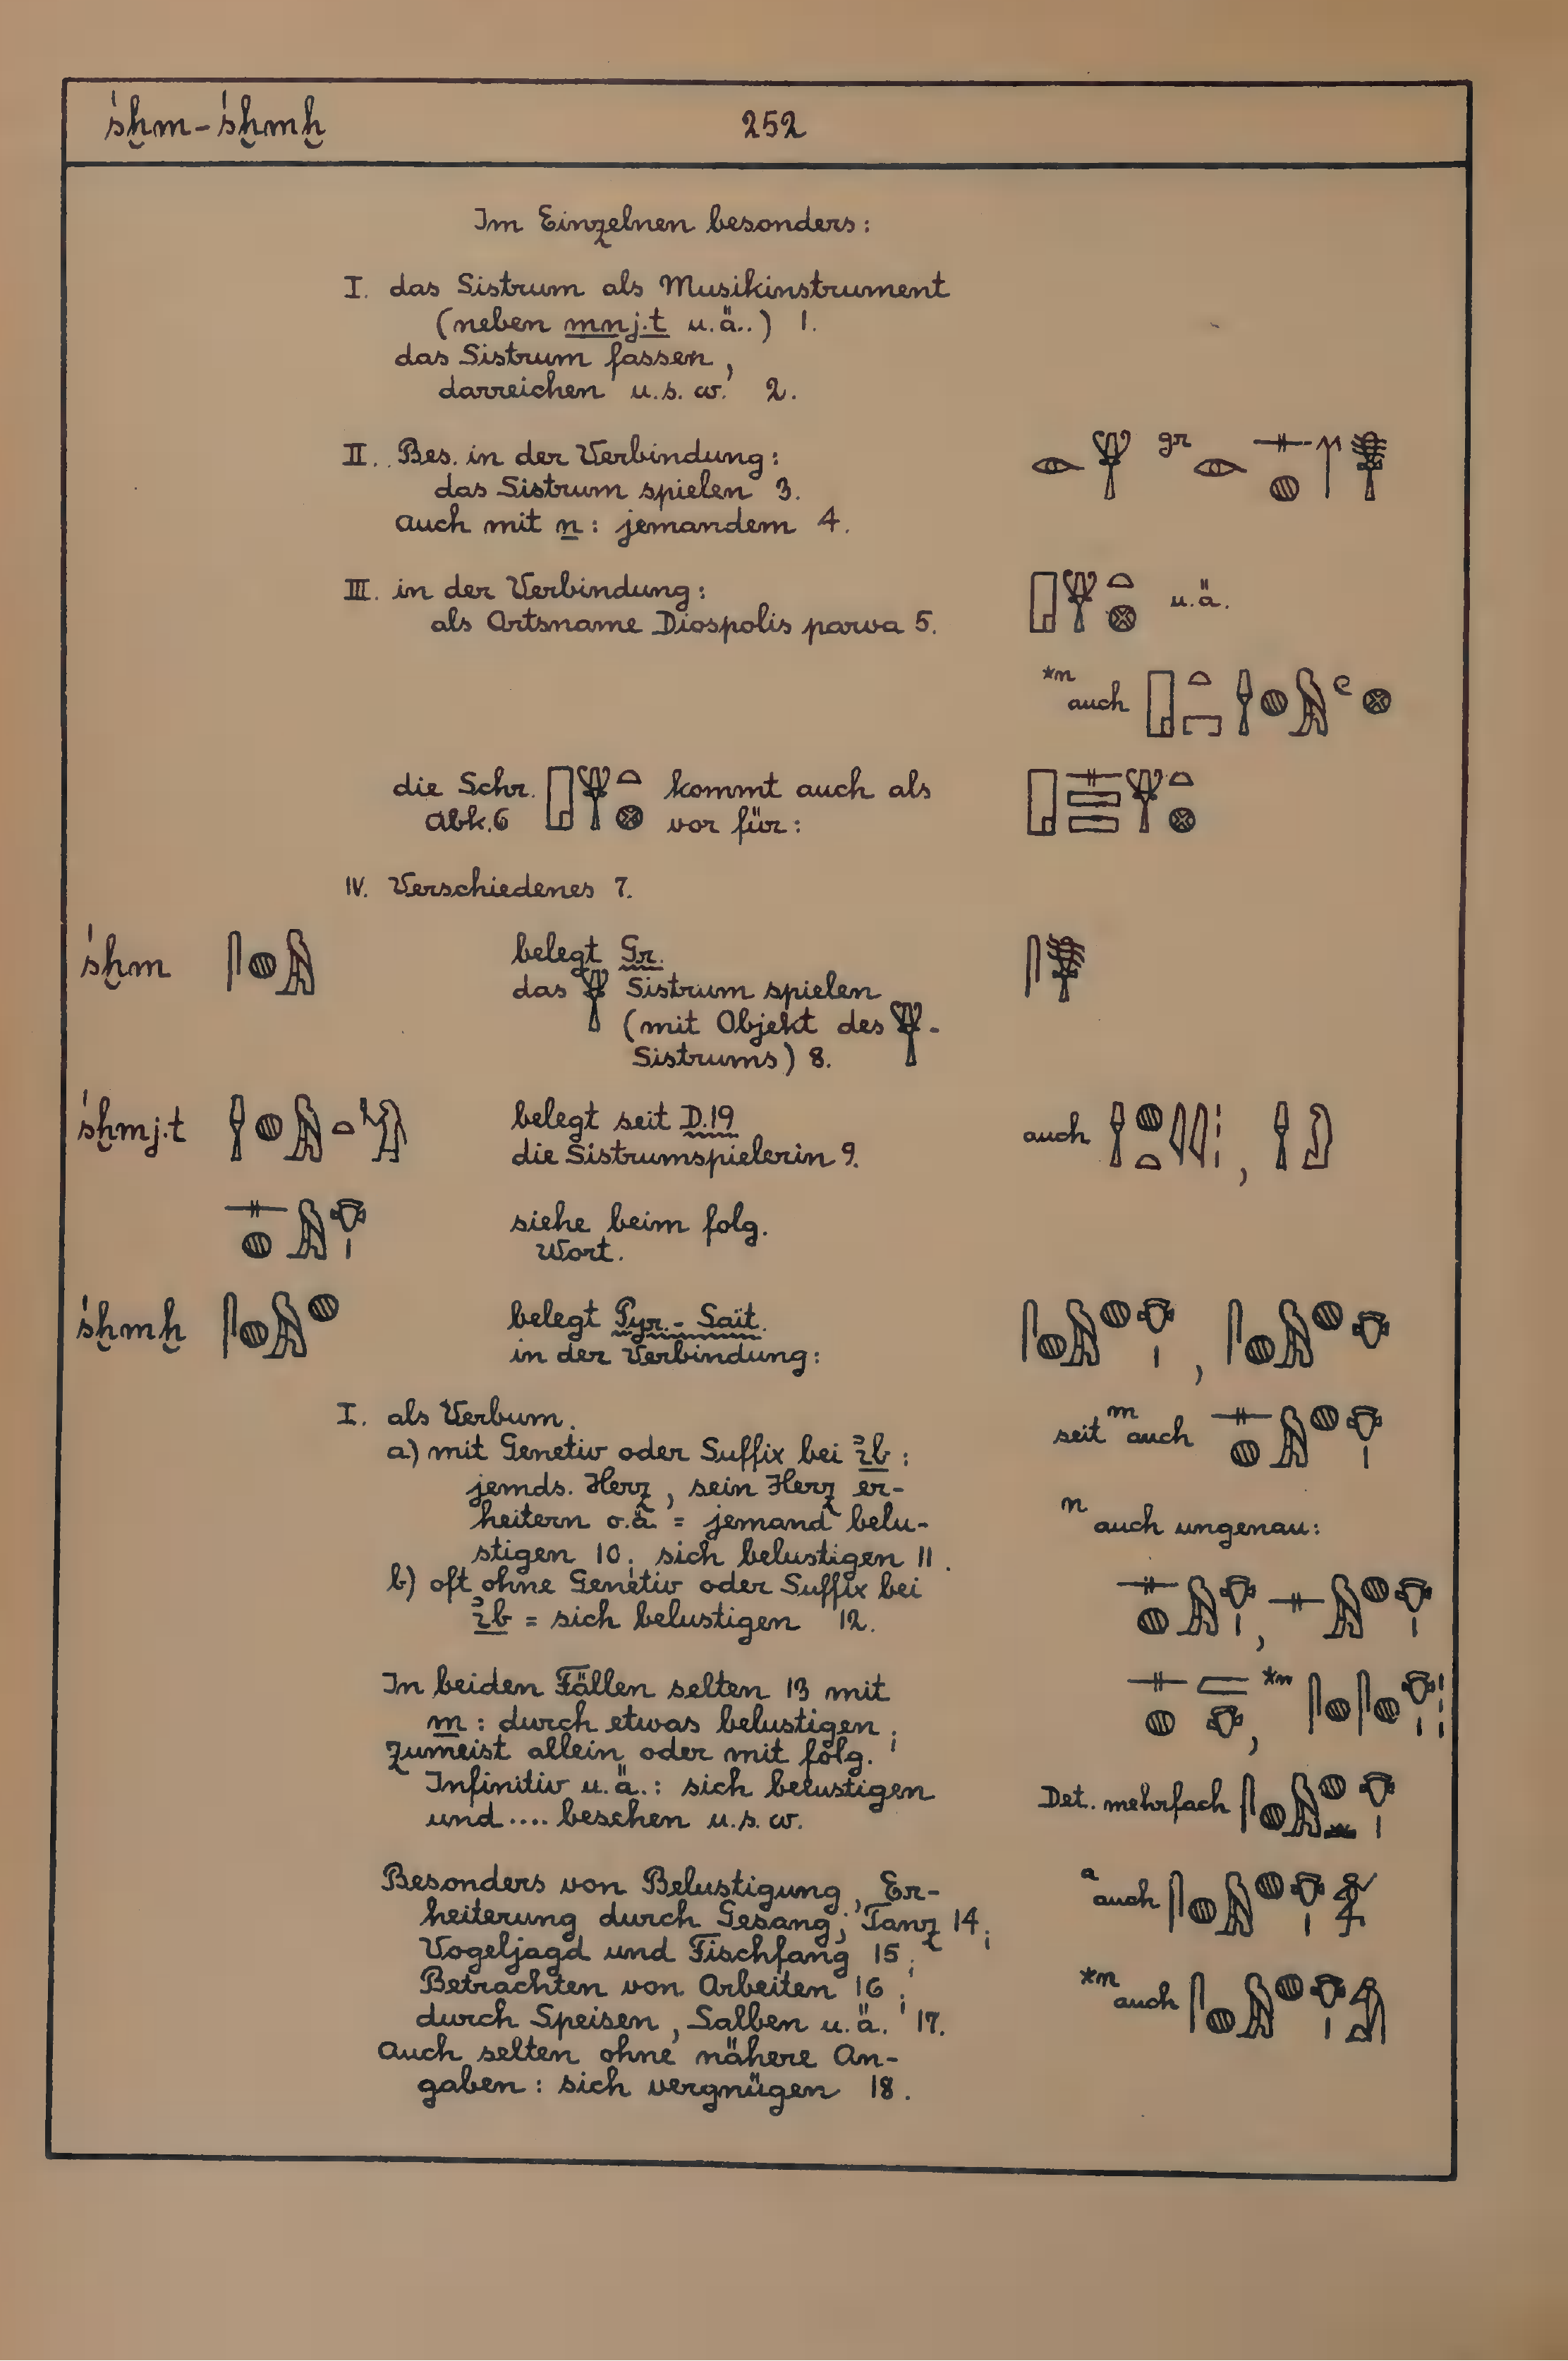 śḫm - śḫmḫ 252
Im Einzelnen besonders:
I. das Sistrum als Musikinstrument
(neben mnj.t u.ä..) 1.
das Sistrum fassen,
darreichen u.s.w. 2.
II. Bes. in der Verbindung: gr
das Sistrum spielen 3.
auch mit n: jemandem 4.
III. in der Verbindung: u.ä.
als Ortsname Diospolis parva 5.
*n auch
die Schr. kommt auch als
Abk. 6 vor für:
IV. Verschiedenes 7.
śḫm belegt Gr.
das Sistrum spielen
(mit Objekt des -
Sistrums) 8.
śḫmj.t belegt seit D.19 auch ,
die Sistrumspielerin 9.
siehe beim folg.
Wort.
śḫmḫ belegt Pyr. - Saït. ,
in der Verbindung:
I. als Verbum. seit m auch
a) mit Genetiv oder Suffix bei ı͗b:
jemds. Herz, sein Herz er-
heitern o.ä. = jemand belu- n auch ungenau:
stigen 10; sich belustigen 11.
b) oft ohne Genetiv oder Suffix bei
ı͗b = sich belustigen 12. ,
In beiden Fällen selten 13 mit *n
m: durch etwas belustigen; ,
zumeist allein oder mit folg.
Infinitiv u.ä.: sich belustigen Det. mehrfach
und .... besehen u.s.w.
Besonders von Belustigung, Er- a auch
heiterung durch Gesang, Tanz 14;
Vogeljagd und Fischfang 15;
Betrachten von Arbeiten 16; *n auch
durch Speisen, Salben u.ä. 17.
Auch selten ohne nähere An-
gaben: sich vergnügen 18.